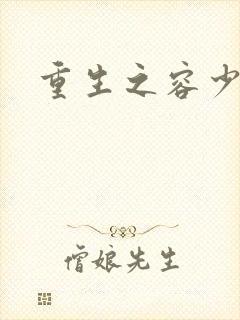 重生之容少
僧娘先生